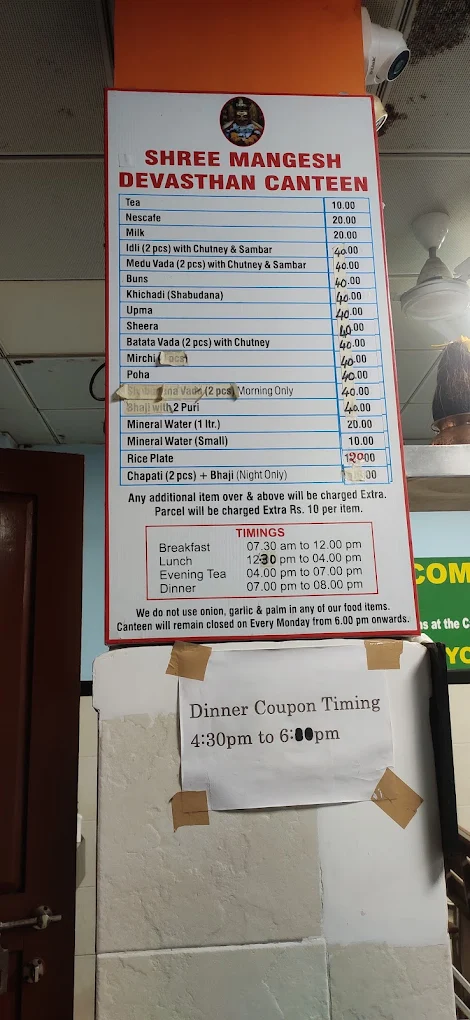 SHREE MANGESH
DEVASTHAN CANTEEN
Tea 10.00
Nescafe 20.00
Milk 20.00
Idli (2 pcs) with Chutney & Sambar 40.00
Medu Vada (2 pcs) with Chutney & Sambar 40.00
Buns 40.00
Khichadi (Shabudana) 40.00
Upma 40.00
Sheera 40.00
Batata Vada (2 pcs) with Chutney 40.00
Mirchi 40.00
Poha 40.00
Vada (2 pcs) Morning Only 40.00
Bhaji with 2 Puri 40.00
Mineral Water (1 ltr.) 20.00
Mineral Water (Small) 10.00
Rice Plate
Chapati (2 pcs) + Bhaji (Night Only)
Any additional item over & above will be charged Extra.
Parcel will be charged Extra Rs. 10 per item.
TIMINGS
Breakfast 07.30 am to 12.00 pm
Lunch 12.30 pm to 04.00 pm
Evening Tea 04.00 pm to 07.00 pm
Dinner 07.00 pm to 08.00 pm
We do not use onion, garlic & palm in any of our food items.
Canteen will remain closed on Every Monday from 6.00 pm onwards.
Dinner Coupon Timing
4:30pm to 6:00pm
COM
at the C
YO